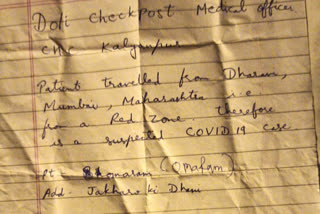 Doli Checkpost Medical officer
CHC Kalyanpur
Patient travelled from Dharavi,
Mumbai, Maharashtra i.e
from a Red Zone. therefore
is a suspected COVID19 case.
Pt - (Omaram)
Add - Jakharo ki Dhani